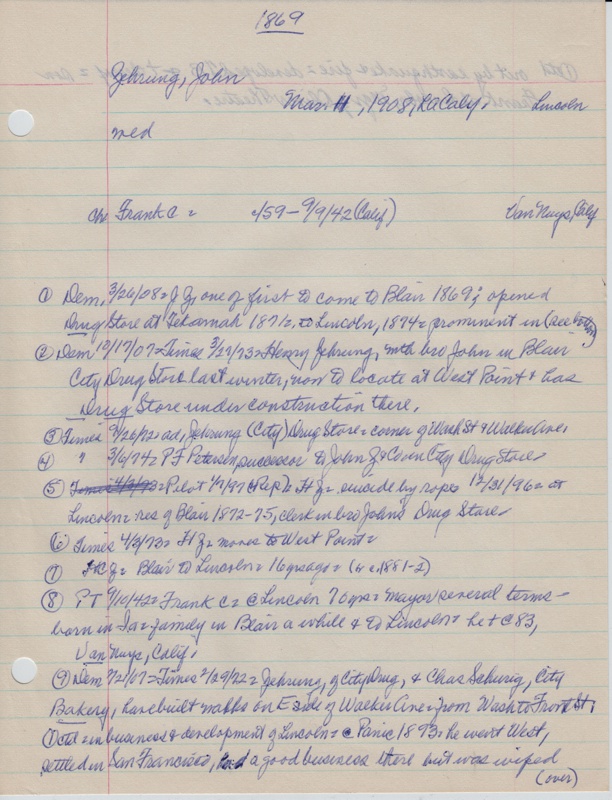 1869
Zehrung, John
Mar. 11, 1908, LA Caly. Lincoln
med
ch Frank C = c/59 - 9/9/42 (Calif) Van Nuys, Calif
① Dem, 3/26/08 = J Z, one of first to come to Blair 1869; opened
Drug Store at Tekamah 1871, to Lincoln, 1874 = prominent in (see bottom)
② Dem 10/17/07 = Times 3/27/73 = Henry Zehrung, with bro John in Blair
City Drug Store last winter, now to locate at West Point & has
Drug Store under construction there.
③ Times 9/26/72 = ad, Zehrung (City) Drug Store = corner of Wash St & Walker Ave.
④ " 3/6/74 = P F Petersen successor to John Z & Co in City Drug Store
⑤ Times 4/3/73 = Pilot 1/7/97 (Rep) = H Z = suicide by rope 12/31/96 = at
Lincoln = res of Blair 1872-75, clerk in bro John's Drug Store
⑥ Times 4/3/73 = H Z = moves to West Point =
⑦ F C Z = Blair to Lincoln = 16 yrs ago = (c 1881-2)
⑧ PT 9/10/42 = Frank C = @ Lincoln 70 yrs = Mayor several terms -
born in Ia = family in Blair a while & to Lincoln = he + @ 83,
Van Nuys, Calif.
⑨ Dem 7/2/07 = Times 2/29/72 = Zehrung, of City Drug, & Chas Schurig, City
Bakery, have built walks on E side of Walker Ave = from Wash to Front St.
① Ctd = in business & development of Lincoln = @ Panic 1893 = he went West,
settled in San Francisco, had a good business there but was wiped
(over)